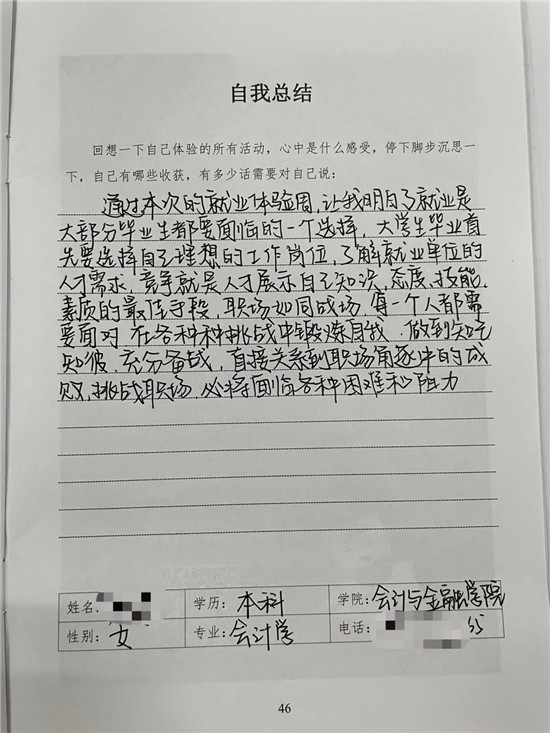 自我总结
回想一下自己体验的所有活动，心中是什么感受，停下脚步沉思一
下，自己有哪些收获，有多少话需要对自己说：
通过本次的就业体验周，让我明白了就业是
大部分毕业生都要面临的一个选择，大学生毕业首
先要选择自己理想的工作岗位，了解就业单位的
人才需求，竞争就是人才展示自己知识，态度，技能，
素质的最佳手段，职场如同战场，每一个人都需
要面对，在各种种挑战中锻炼自我，做到知己
知彼，充分备战，直接关系到职场角逐中的成
败，挑战职场，必将面临各种困难和阻力
姓名： 学历：本科 学院：会计与金融学院
性别：女 专业：会计学 电话：
46